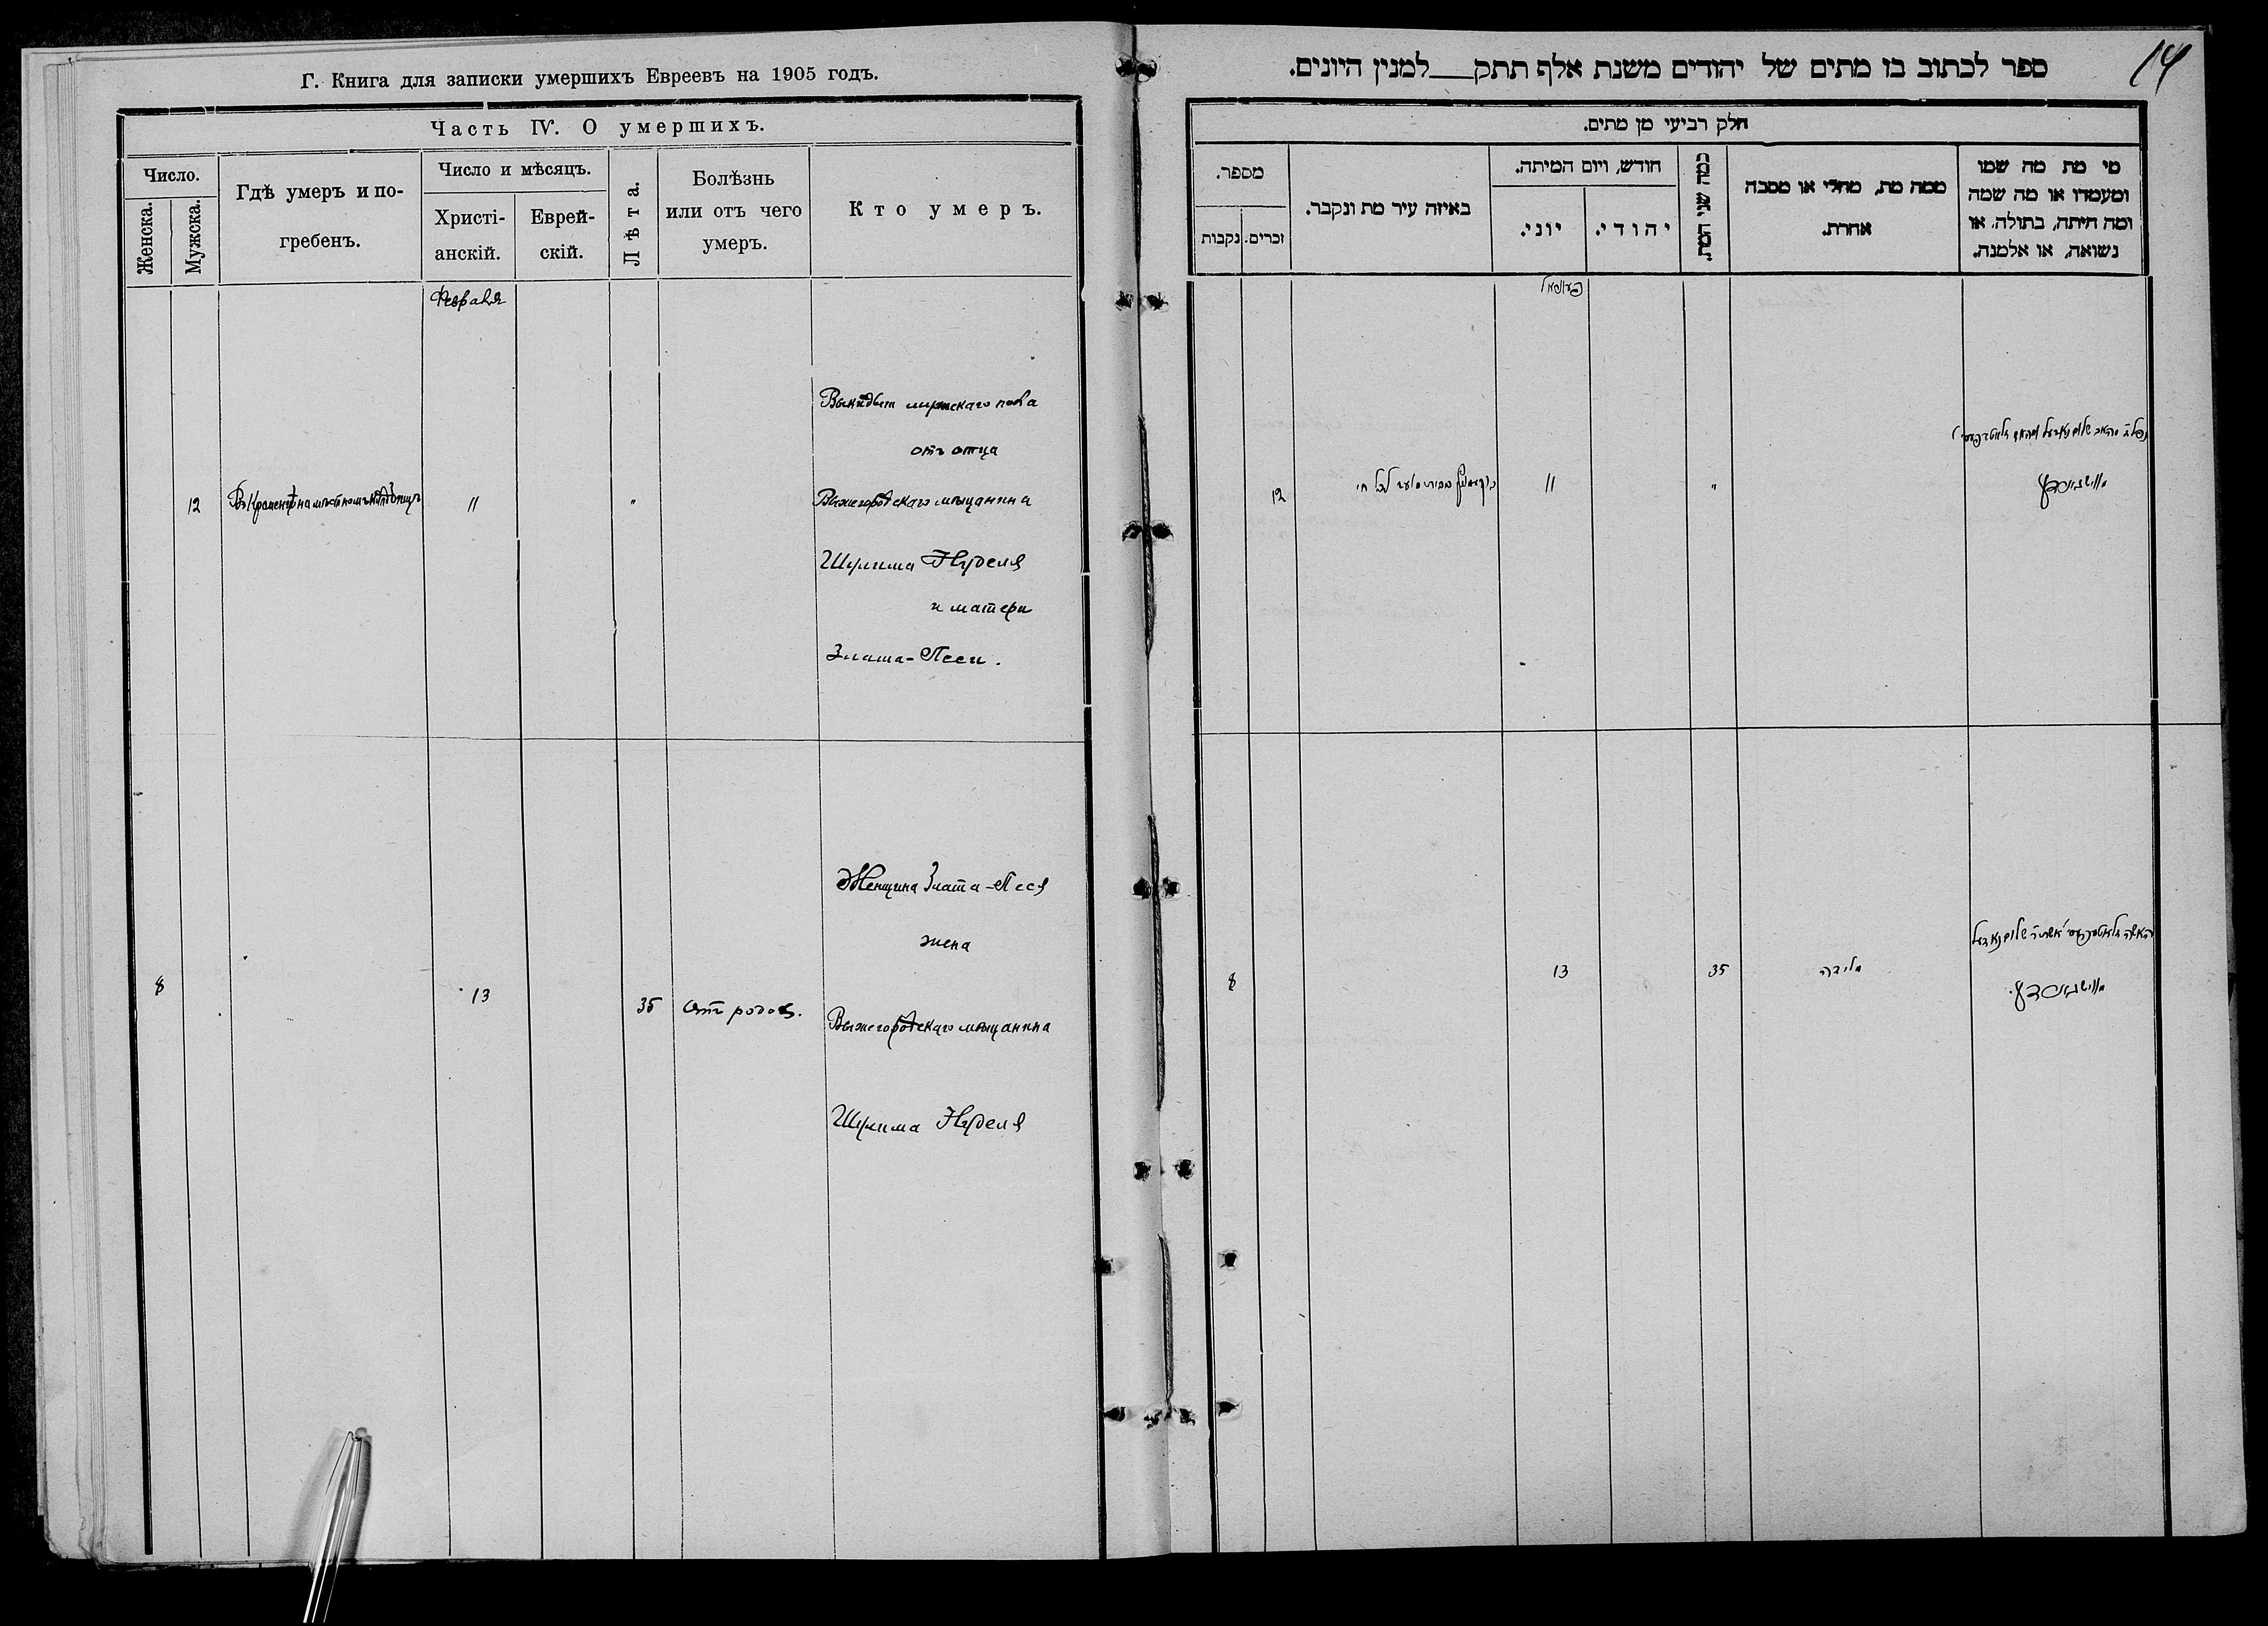 Г. Книга для записки умершихъ Евреевъ на 1905 годъ.
Часть IV. О умершихъ.
Число.
Женска.
Мужска.
Гдѣ умеръ и по-
гребенъ.
Число и мѣсяцъ.
Христі-
анскій.
Еврей-
скій.
Лѣта.
Болѣзнь
или отъ чего
умеръ.
Кто умеръ.
Февраля
12
11
"
отъ отца
Вышегородскаго мѣщанина
Шулима Нуделя
и матери
Злата-Песи.
8
13
35
Отъ родов.
Женщина Злата-Песя
жена
Вышегородскаго мѣщанина
Шулима Нуделя
14
ספר לכתוב בו מתים של יהודים משנת אלף תתק למנין היונים.
חלק רביעי מן מתים.
מספר.
נקבות
זכרים.
באיזה עיר מת ונקבר.
חודש, ויום המיתה.
יוני.
יהודי.
כמה שני המת.
ממה מת, מחלי או מסבה
אחרת.
מי מת מה שמו
ומעמדו או מה שמה
ומה היתה, בתולה, או
נשואה, או אלמנה.
12
11
"
8
13
35
מלידה